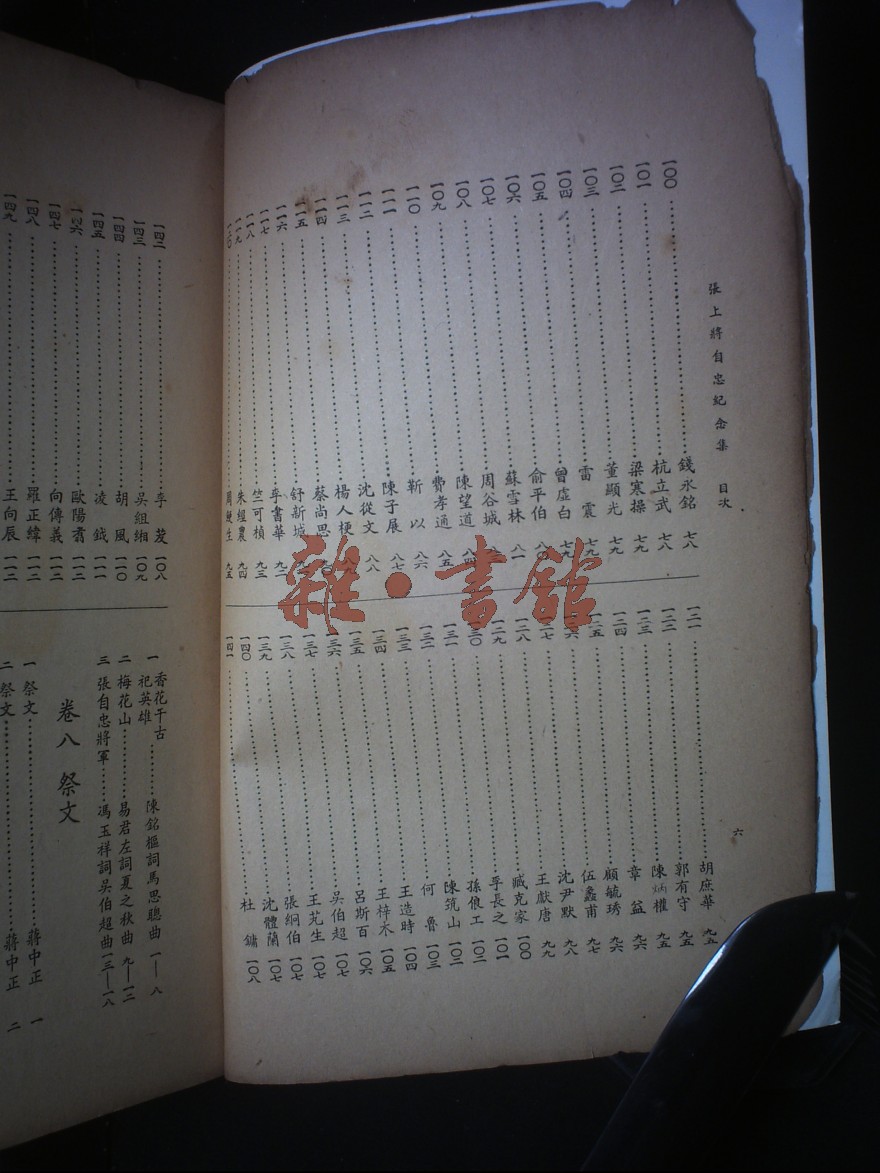 張上將自忠紀念集 目次
一〇〇……錢永銘 七八
一〇一……杭立武 七八
一〇二……梁寒操 七九
一〇三……董顯光 七九
一〇四……雷震 七九
一〇五……曾虛白 七九
一〇六……俞平伯 八〇
一〇七……蘇雪林 八一
一〇八……周谷城
一〇九……陳望道 八四
一一〇……費孝通 八五
一一一……靳以 八六
一一二……陳子展 八七
一一三……沈從文 八八
一一四……楊人楩
一一五……蔡尚思 九〇
一一六……舒新城
一一七……李書華 九二
一一八……竺可楨 九三
一一九……朱經農 九四
一二〇……周鯁生 九五
一二一……胡庶華 九五
一二二……郭有守 九五
一二三……陳炳權 九五
一二四……章益 九六
一二五……顧毓琇 九六
一二六……伍蠡甫 九七
一二七……沈尹默 九八
一二八……王獻唐 九九
一二九……臧克家 一〇〇
一三〇……李長之 一〇一
一三一……孫俍工 一〇二
一三二……陳筑山 一〇二
一三三……何魯 一〇三
一三四……王造時 一〇四
一三五……王梓木 一〇五
一三六……呂斯百 一〇六
一三七……吳伯超 一〇七
一三八……王芃生 一〇七
一三九……張絅伯 一〇七
一四〇……沈體蘭 一〇七
一四一……杜鏞 一〇八
六
雜·書館
一四二……李 一〇八
一四三……吳組緗 一〇九
一四四……胡風 一一〇
一四五……凌鉞 一一一
一四六……歐陽翥 一一二
一四七……向傳義 一一二
一四八……羅正緯 一一二
一四九……王向辰 一一二
一 香花千古祀英雄……陳銘樞詞馬思聰曲 一—八
二 梅花山……易君左詞夏之秋曲 九—一二
三 張自忠將軍……馮玉祥詞吳伯超曲 一三—一八
卷八 祭文
一 祭文……蔣中正 一
二 祭文……蔣中正 二